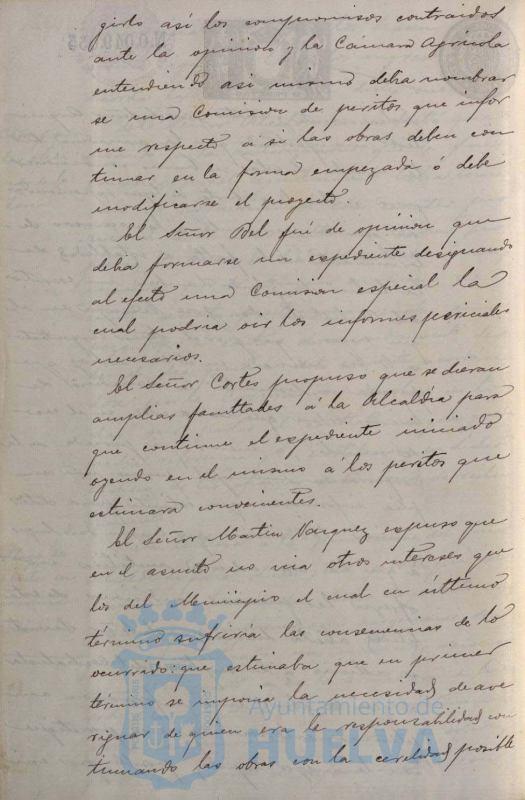 girlo así los compromisos contraidos
ante la opinion y la Cámara Agrícola
entendiendo asi mismo debia nombrar
se una Comision de peritos que infor
me respecto á si las obras deben con
tinuar en la forma empezada ó debe
modificarse el proyecto.
El Señor Bel fué de opinion que
debia formarse un expediente designando
al efecto una Comision especial la
cual podria oir los informes periciales
necesarios.
El Señor Cortes propuso que se dieran
amplias facultades á la Alcaldía para
que continue el expediente iniciado
oyendo en el mismo á los peritos que
estimara convenientes.
El Señor Martin Vazquez expuso que
en el asunto no via otros intereses que
los del Municipio el cual en último
término sufriría las consecuencias de lo
ocurrido: que estimaba que en primer
término se imponia la necesidad de ave
riguar de quien era la responsabilidad con
tinuando las obras con la celeridad posible
Ayuntamiento de
HUELVA